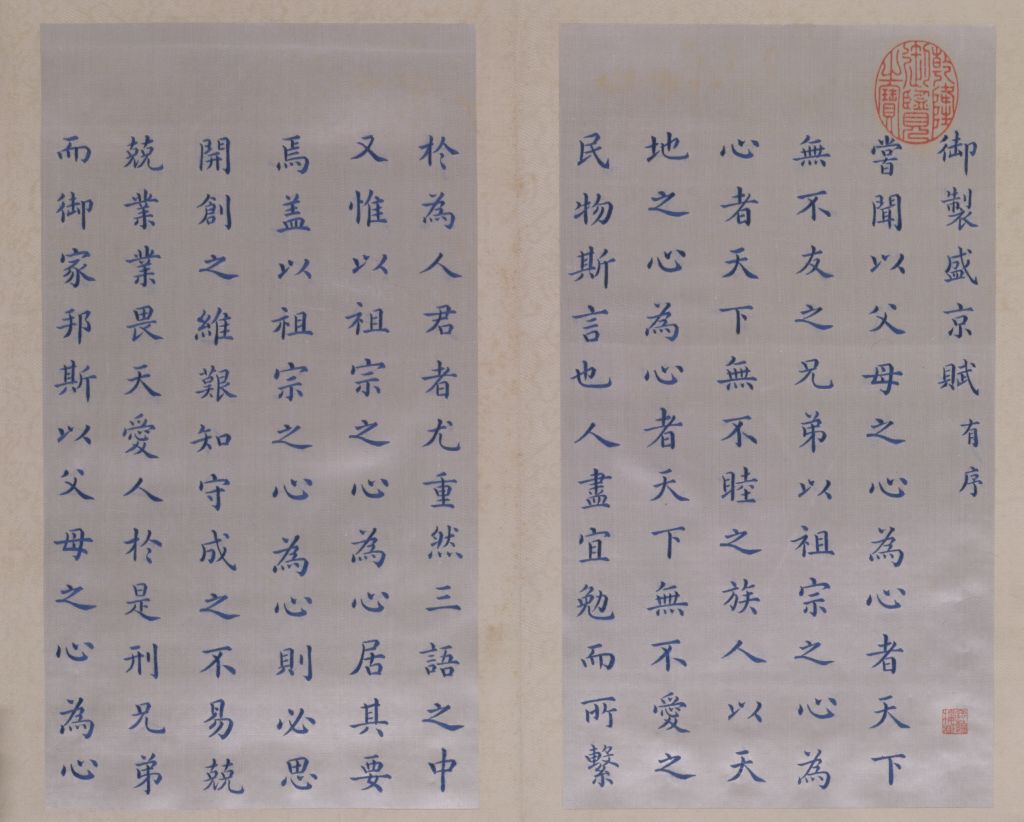 乾隆御覽之寶
御製盛京賦有序
嘗聞以父母之心為心者天下
無不友之兄弟以祖宗之心為
心者天下無不睦之族人以天
地之心為心者天下無不愛之
民物斯言也人盡宜勉而所繫
於為人君者尤重然三語之中
又惟以祖宗之心為心居其要
焉盖以祖宗之心為心則必思
開創之維艱知守成之不易兢
兢業業畏天愛人於是刑兄弟
而御家邦斯以父母之心為心